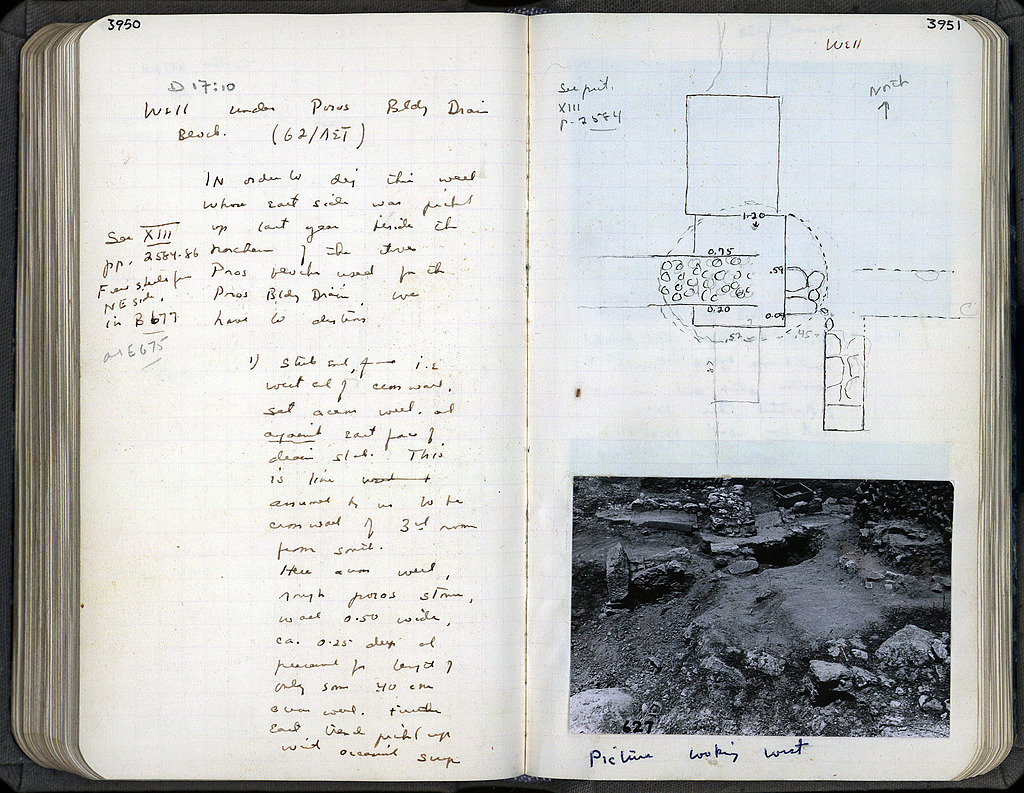 3950
D 17:10
Well under Poros Bldg Drain
Block. (62/ΛΕΤ)
IN order to dig this well
whose east side was picked
up last year beside the
northern of the three
Poros blocks used for the
Poros Bldg Drain, we
have to destroy
See XIII
pp. 2584-86
Few sherds from
NE side,
in B 677
E 675
1) Stub
west end of cross wall,
set across well. and
against east face of
drain slab. This
is line
assumed by us to be
cross wall of 3rd room
from south.
Here across well,
rough poros stone,
wall 0.50 wide,
ca. 0.25 deep and
preserved for length of
only some 40 cm
across well. Further
east trend picked up
with occasional
3951
Well
See pict.
XIII
p. 2584
North
1.20
0.95
.59
0.20
0.04
?
.52
.45
Picture looking west
627